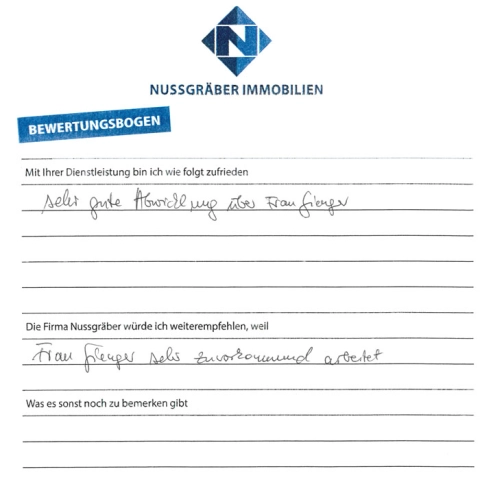 N
NUSSGRÄBER IMMOBILIEN
BEWERTUNGSBOGEN
Mit Ihrer Dienstleistung bin ich wie folgt zufrieden
sehr gute Abwicklung über Frau Gienger
Die Firma Nussgräber würde ich weiterempfehlen, weil
Frau Gienger sehr zuvorkommend arbeitet
Was es sonst noch zu bemerken gibt